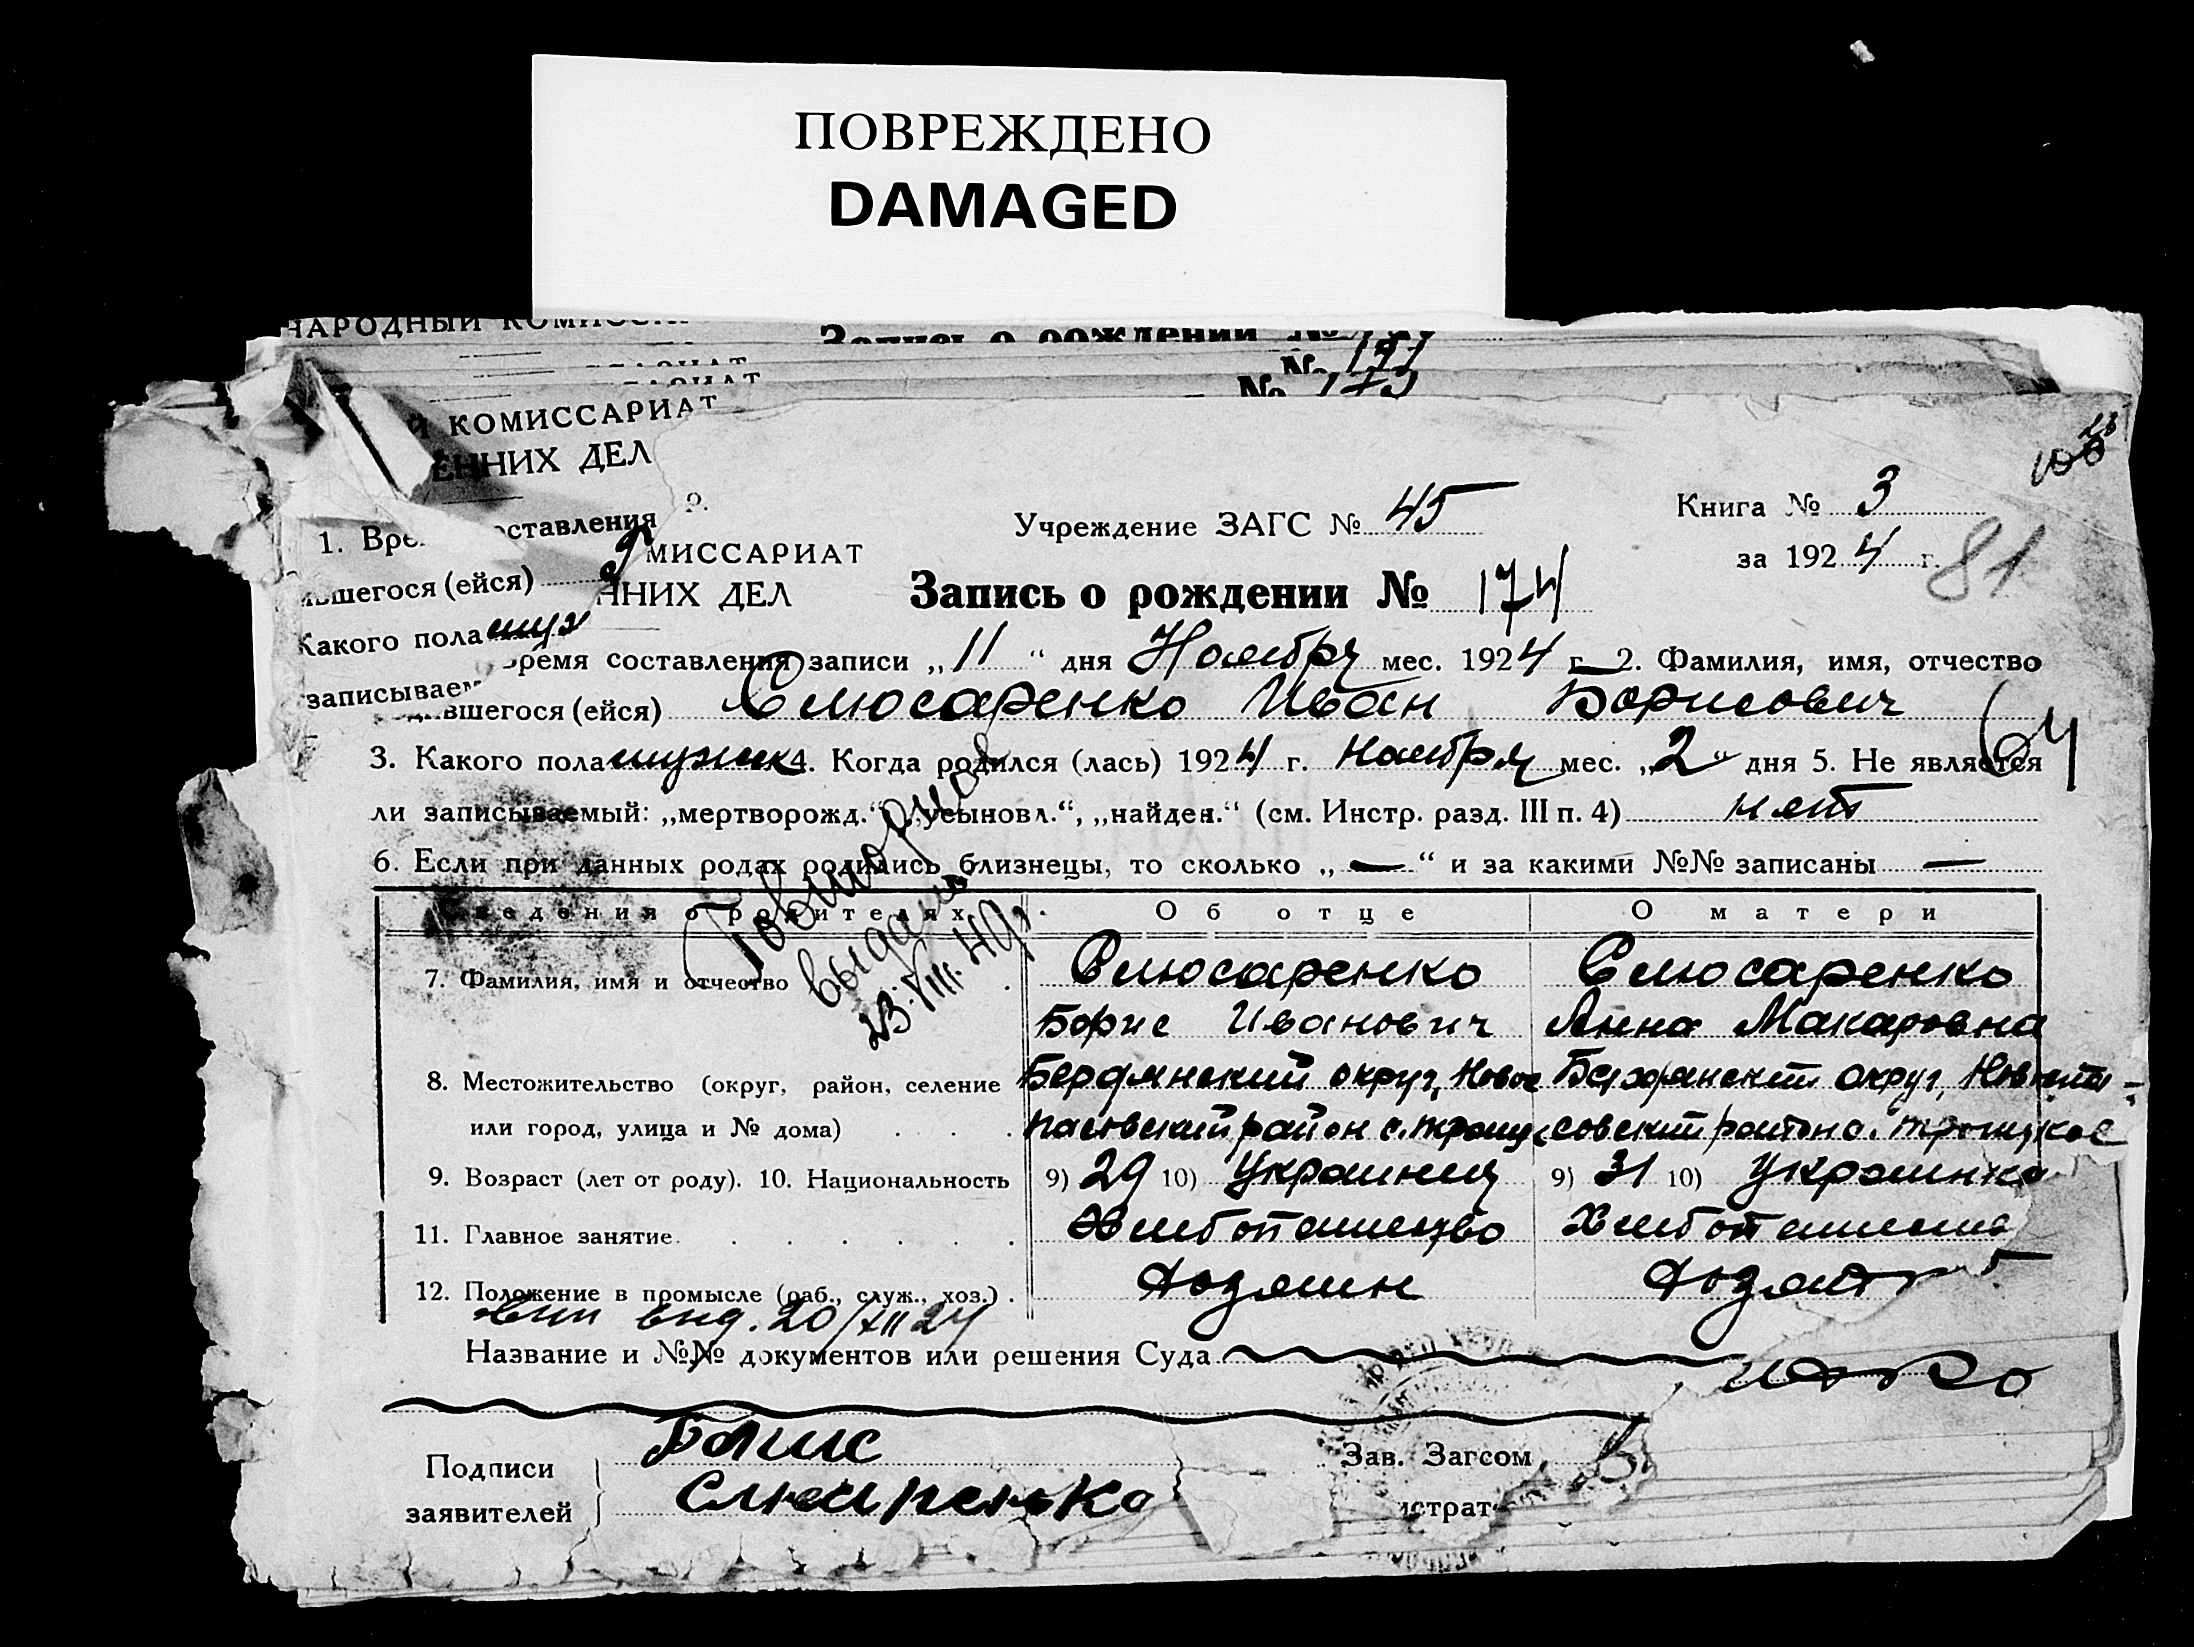 ПОВРЕЖДЕНО
DAMAGED
НАРОДНЫЙ
Запись о рождении №
№ 173
КОМИССАРИАТ
ЕННИХ ДЕЛ
1. Вре оставления
вшегося (ейся)
Какого пола муж
записывае
Учреждение ЗАГС № 45
Книга № 3
за 1924 г. 81
МИССАРИАТ
ННИХ ДЕЛ
Запись о рождении № 174
время составления записи „11“ дня Ноября мес. 1924 г. 2. Фамилия, имя, отчество
вшегося (ейся) Слюсаренко Иван Борисович
64
3. Какого пола мужск 4. Когда родился (лась) 1924 г. Ноября мес. „2“ дня 5. Не является
ли записываемый: „мертворожд.“, „усыновл.“, „найден.“ (см. Инстр. разд. III п. 4) нет
6. Если при данных родах родились близнецы, то сколько „—“ и за какими №№ записаны —
Повторное
выдано
23.VIII.49г.
Сведения о родителях. Об отце О матери
7. Фамилия, имя и отчество Слюсаренко Слюсаренко
Борис Иванович Анна Макаровна
8. Местожительство (округ, район, селение Бердянский округ, Ново Бердянский округ, Новоспа-
или город, улица и № дома) спасовский район с. Троицкое совский район с. Троицкое
9. Возраст (лет от роду). 10. Национальность 9) 29 10) Украинец 9) 31 10) Украинка
11. Главное занятие Хлебопашество Хлебопашество
12. Положение в промысле (раб., служ., хоз.) Хозяин Хозяин
выд. 20/XII 24
Название и №№ документов или решения Суда
Подписи Борис
заявителей Слюсаренко
Зав. Загсом
истрат